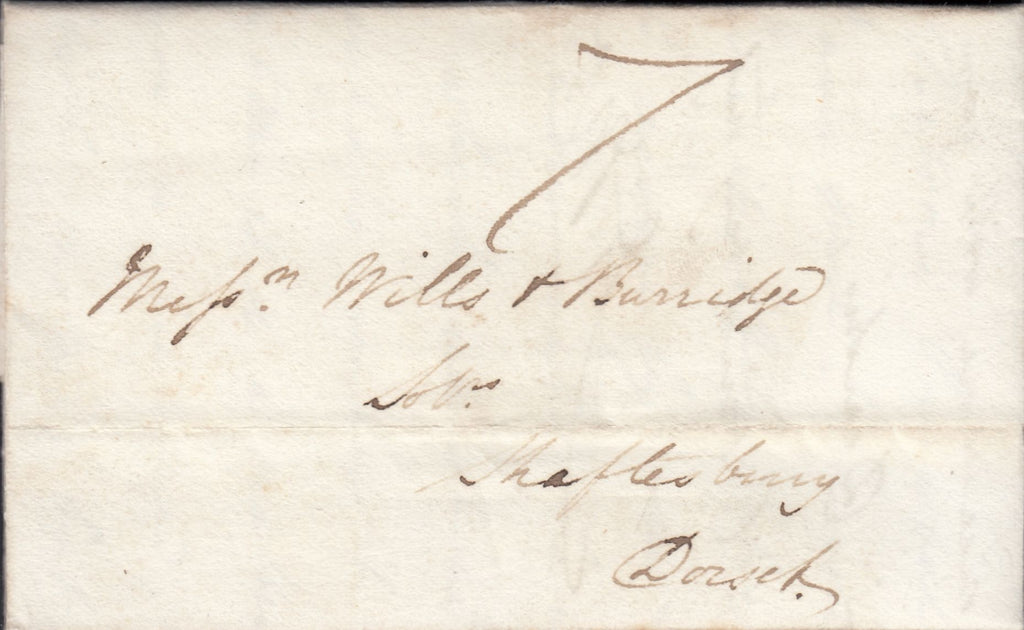 7
Messrs. Wills & Burridge
Solrs.
Shaftesbury
Dorset.